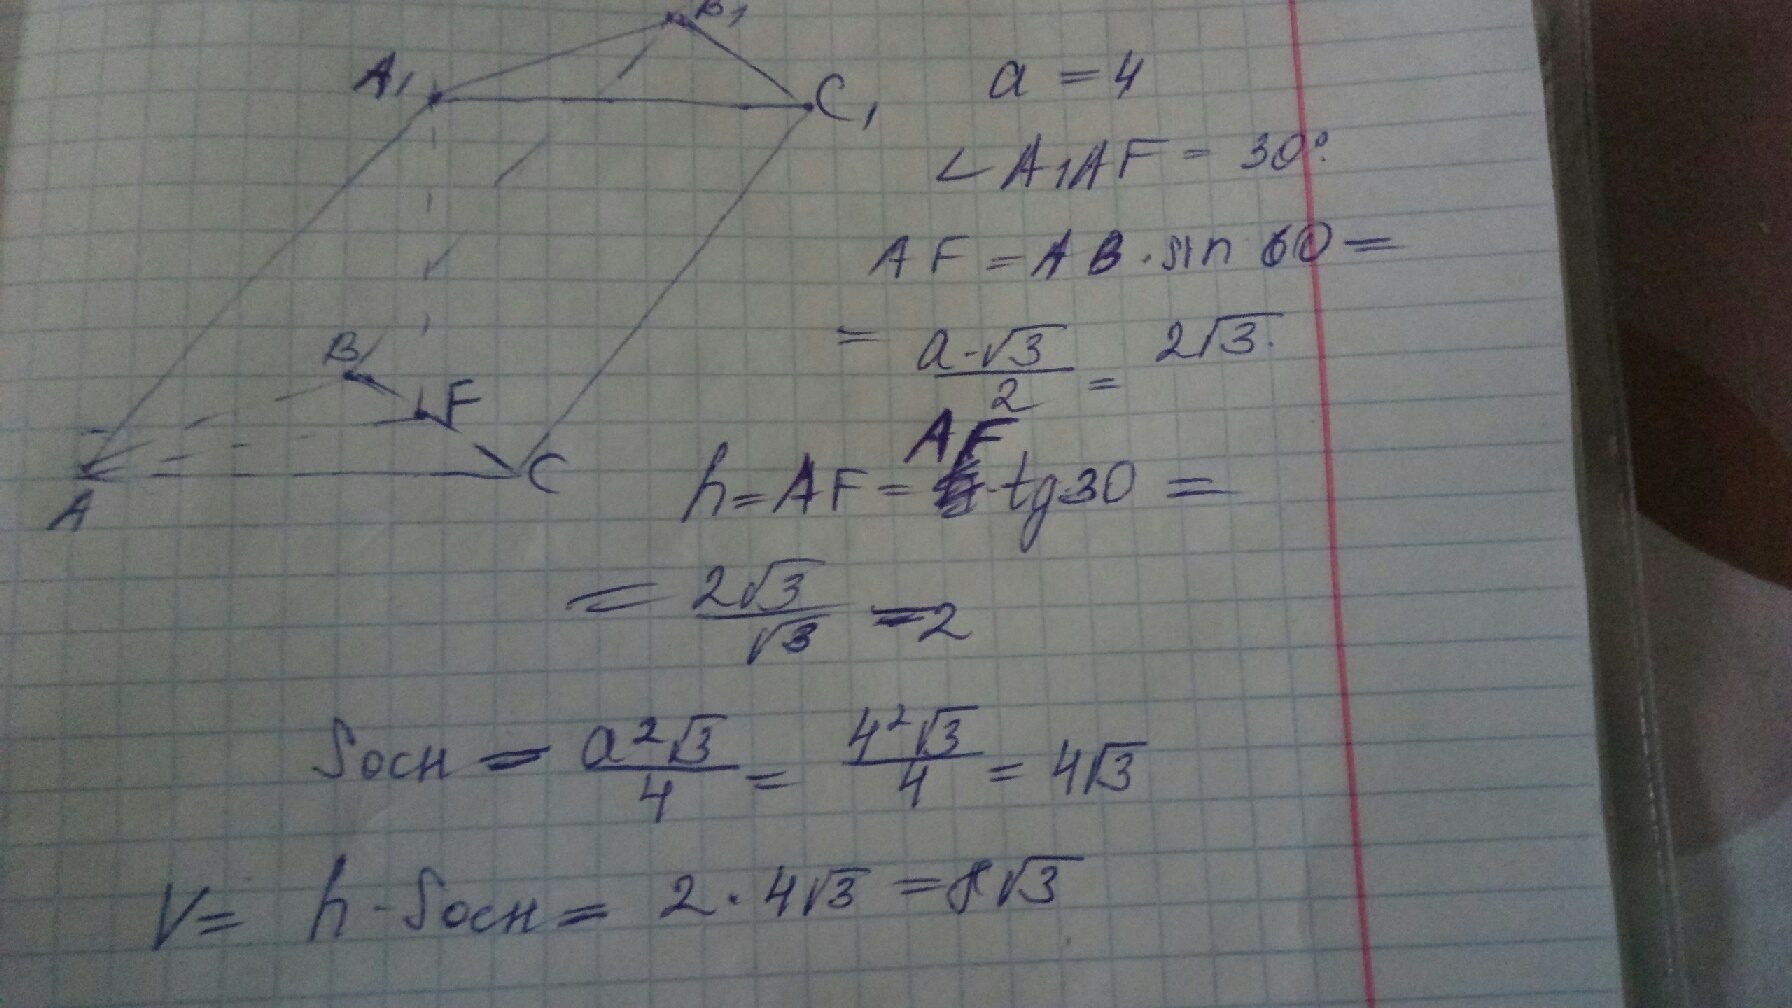 B₁
A₁
C₁
a = 4
∠A₁AF = 30°.
AF = AB · sin 60 =
= a·√3/2 = 2√3.
B
F
A
C
h = AF = AF · tg 30 =
= 2√3/√3 = 2
Sосн = a²√3/4 = 4²√3/4 = 4√3
V = h · Sосн = 2 · 4√3 = 8√3